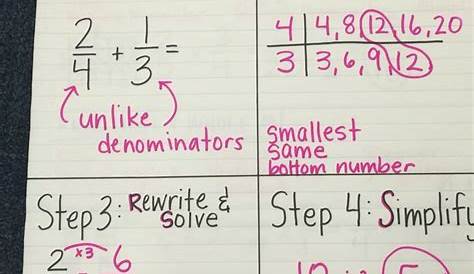 2/4 + 1/3 =
unlike
denominators
4 | 4, 8, 12, 16, 20
3 | 3, 6, 9, 12
smallest
same
bottom number
Step 3: Rewrite &
Solve
2 x3 6
Step 4: Simplify